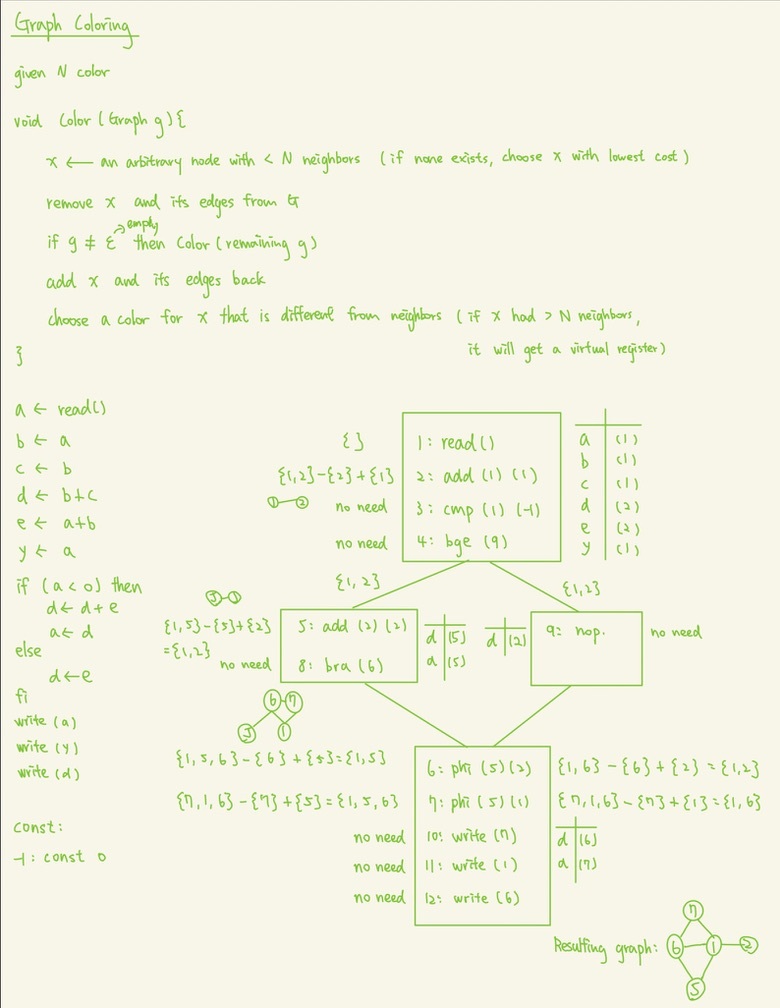 Graph Coloring
given N color
void Color (Graph g) {
x ← an arbitrary node with < N neighbors (if none exists, choose x with lowest cost)
remove x and its edges from G
→ empty
if g ≠ ε then Color (remaining g)
add x and its edges back
choose a color for x that is different from neighbors (if x had > N neighbors,
it will get a virtual register)
}
a ← read()
b ← a
c ← b
d ← b+c
e ← a+b
y ← a
if (a < 0) then
d ← d + e
a ← d
else
d ← e
fi
write (a)
write (y)
write (d)
const:
-1: const 0
{ }
1: read()
{1,2}-{2}+{1}
2: add (1) (1)
1 2
no need
3: cmp (1) (-1)
no need
4: bge (9)
a (1)
b (1)
c (1)
d (2)
e (2)
y (1)
{1, 2}
{1,2}
5 1
{1,5}-{5}+{2}
={1,2}
5: add (2) (2)
no need
8: bra (6)
d (5)
a (5)
d (2)
9: nop.
no need
6 7
5 1
{1,5,6}-{6}+{5}={1,5}
6: phi (5)(2)
{1,6}-{6}+{2}={1,2}
{7,1,6}-{7}+{5}={1,5,6}
7: phi (5)(1)
{7,1,6}-{7}+{1}={1,6}
no need
10: write (7)
no need
11: write (1)
no need
12: write (6)
d (6)
a (7)
Resulting graph:
7
6 1 2
5